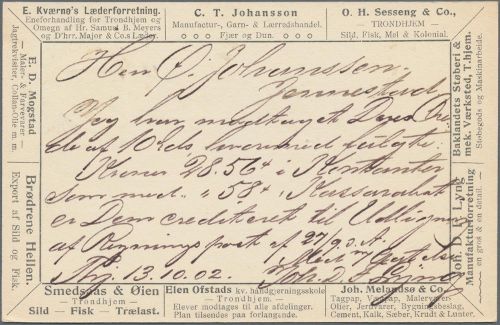 E. Kværnø's Læderforretning.
Eneforhandling for Trondhjem og
Omegn af Hr. Samuel B. Meyers
og D'hrr. Major & Cos Læder.
C. T. Johansson
Manufactur-, Garn- & Lærredshandel.
Fjær og Dun.
O. H. Sesseng & Co.,
TRONDHJEM
Sild, Fisk, Møl & Kolonial.
E. D. Mogstad
Maler- & Farvevarer
Jagtrekvisiter, Collan-Olie m. m.
Brødrene Hellen.
Export af Sild og Fisk.
Baklandets Støberi &
mek. Værksted, T.hjem.
Støbegods og Maskinarbeide.
Joh. D. F. Lyng
Manufakturforretning
en gros & en detail.
Herr O. Johanssen.
Jennestad
Jeg har modtaget Deres
af 10 ds
Kroner 28.56 i Kontanter
som med. 58 i Kassarabat
er Dem crediteret til Udligning
af Regnings post af 27/9 d. A.
Thj. 13.10.02.
Joh. D. F. Lyng
Smedsaas & Øien
Trondhjem
Sild — Fisk — Trælast.
Elen Ofstads kv. handgjerningsskole
Trondhjem
Elever modtages til alle afdelinger.
Plan tilsendes paa forlangende.
Joh. Melandsø & Co.
Tagpap, Vægpap, Malervarer,
Olier, Jernvarer, Bygningsbeslag,
Cement, Kalk, Sæber, Krudt & Lunter.